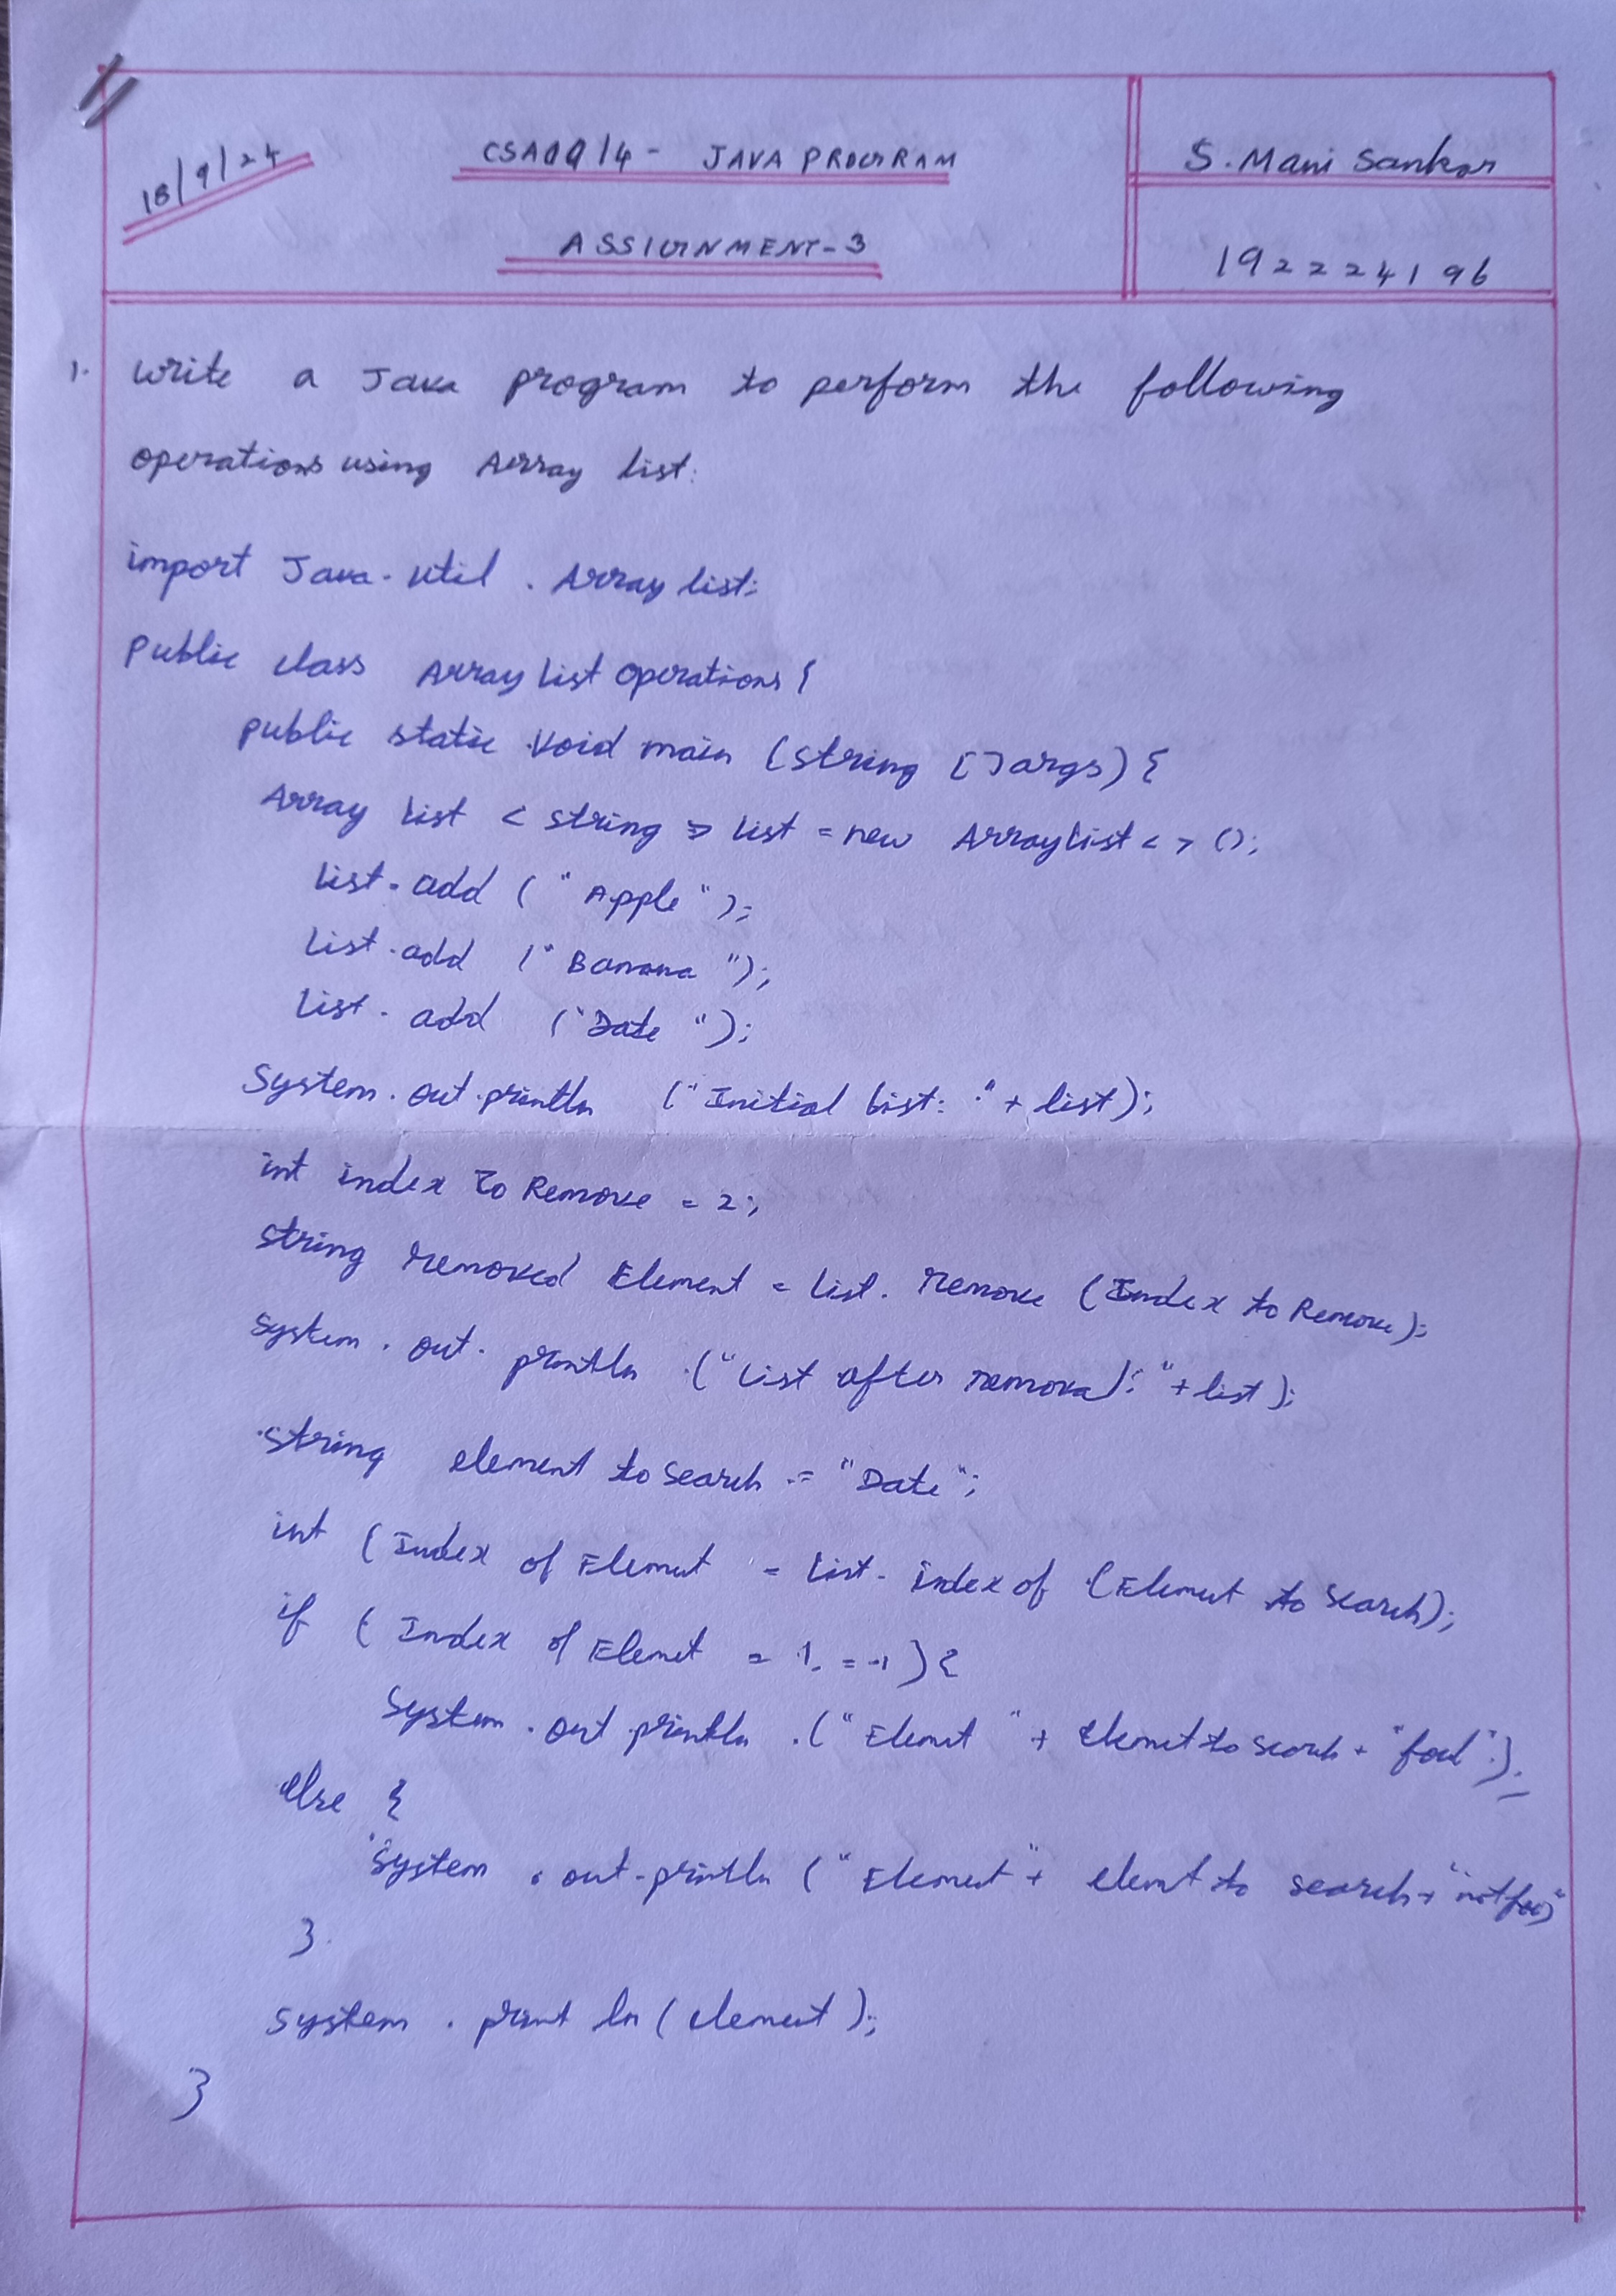 18/9/24
CSA0914 - JAVA PROGRAM
ASSIGNMENT-3
S. Mani Sankar
192224196
1. Write a Java program to perform the following
operations using Array list:
import Java. util . Array list:
Public class Array List operations {
public static void main (string [] args) {
Array List < string > List = new Array List < > ();
List. add ( " Apple " );
List. add (" Banana ");
List. add ("Date ");
System. out. println ("Initial List: " + list);
int index to Remove = 2;
string removed Element = List. remove (Index to Remove);
System. out. println .("List after removal: " + list);
string element to search = "Date";
int ( Index of Elemet = List. index of (Elemet to search);
if ( Index of Elemet = 1. = -1 ) {
System. out println .(" Elemet " + Elemet to search +
else {
System . out. println (" Elemet " + elemt to search +
}
system . print ln ( element );
}